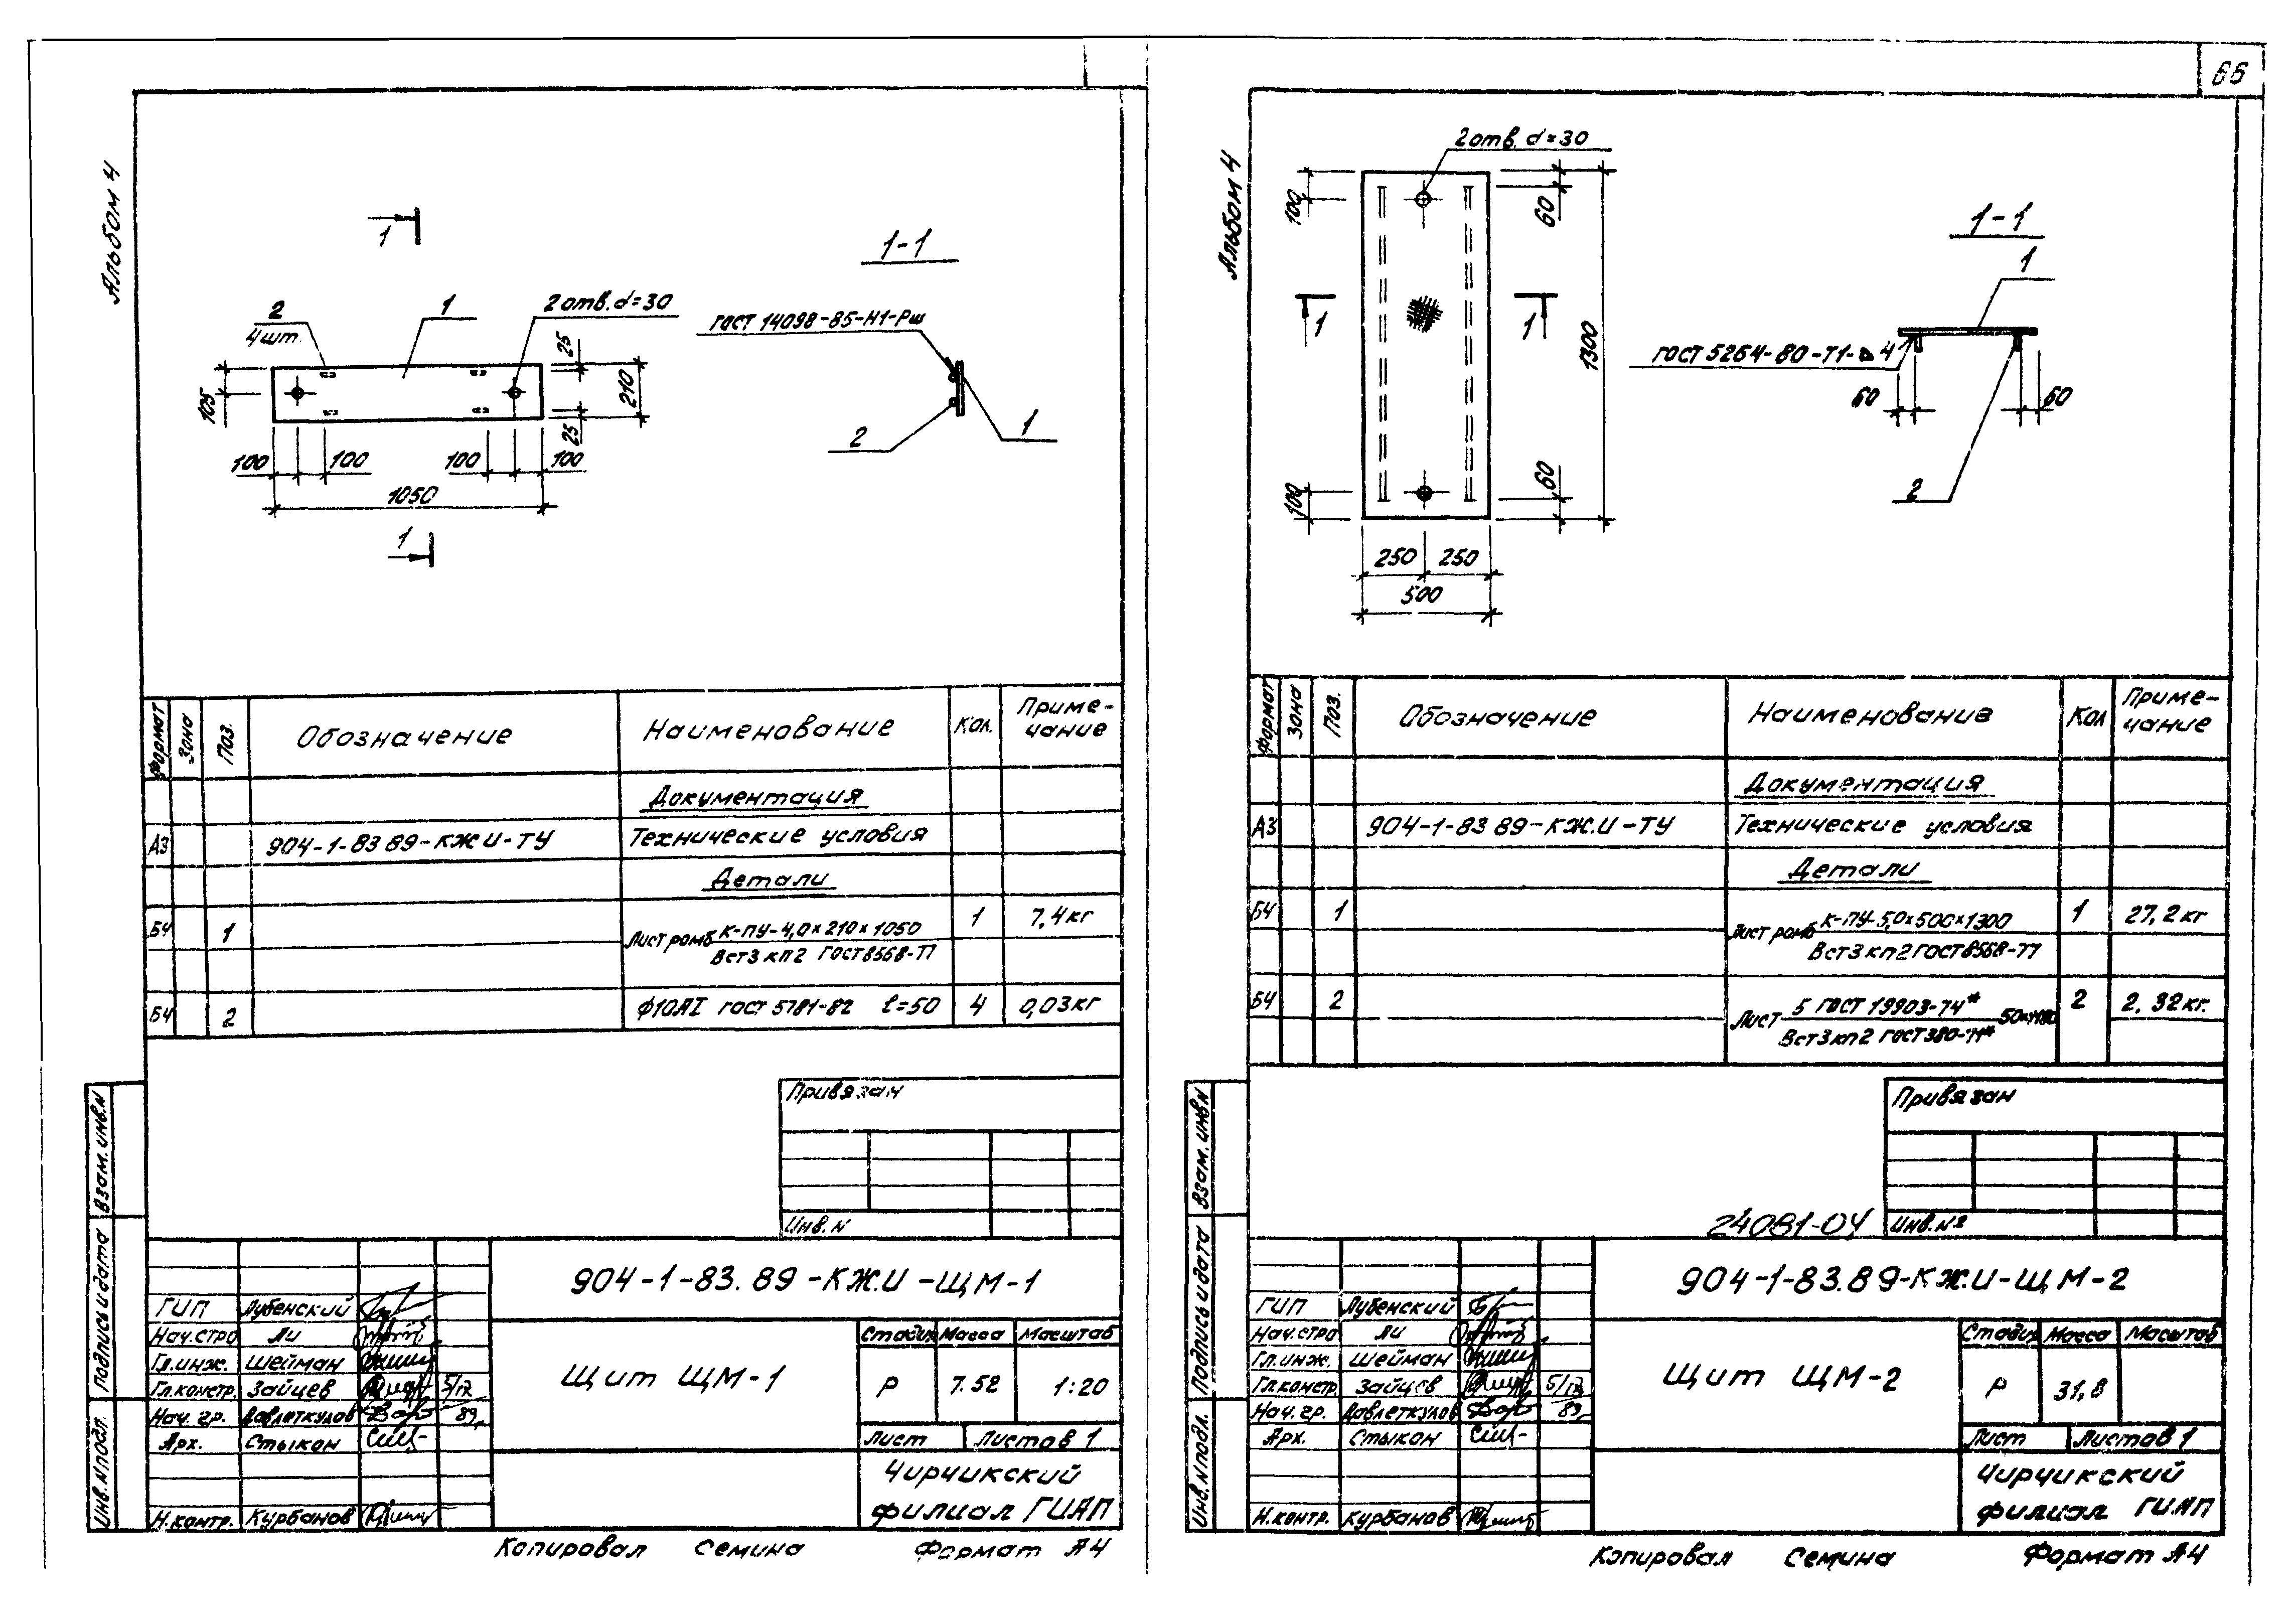 66
Альбом 4
1
1-1
2
4шт.
1
2 отв. d=30
ГОСТ 14098-85-Н1-Рш
25
210
105
25
2
1
100 100 100 100
1050
1
Формат Зона Поз. Обозначение Наименование Кол. Приме-
чание
Документация
А3 904-1-83 89-КЖ.И-ТУ Технические условия
Детали
БЧ 1 Лист ромб К-ПУ-4,0×210×1050 1 7,4кг
Вст3 кп2 ГОСТ 8568-77
БЧ 2 Ф10АI ГОСТ 5781-82 ℓ=50 4 0,03кг
Привязан
Инв. N
Взам. инв.N
Подпись и дата
Инв. N подл.
904-1-83.89-КЖ.И-ЩМ-1
ГИП Лубенский
Нач.стро Ли
Гл.инж. Шейман
Гл.констр. Зайцев 5/12
Нач. гр. Давлеткулов 89
Арх. Стыкон
Н.контр. Курбанов
Щит ЩМ-1
Стадия Масса Масштаб
Р 7.52 1:20
Лист Листов 1
Чирчикский
филиал ГИАП
Копировал Семина Формат А4
Альбом 4
2 отв. d=30
100
60
1300
1 1
100
60
250 250
500
1-1
1
ГОСТ 5264-80-Т1- 4
60 60
2
Формат Зона Поз. Обозначение Наименование Кол Приме-
чание
Документация
А3 904-1-83 89-КЖ.И-ТУ Технические условия
Детали
БЧ 1 Лист ромб К-ПУ-5,0×500×1300 1 27,2кг
Вст3 кп2 ГОСТ 8568-77
БЧ 2 Лист 5 ГОСТ 19903-74* 2 2,32кг.
Вст3кп2 ГОСТ 380-71*
Привязан
24081-04
Инв. №
Взам. инв.N
Подпись и дата
Инв. N подл.
904-1-83.89-КЖ.И-ЩМ-2
ГИП Лубенский
Нач.стро Ли
Гл.инж. Шейман
Гл.констр Зайцев 5/12
Нач. гр. Давлеткулов 89
Арх. Стыкон
Н.контр. Курбанов
Щит ЩМ-2
Стадия Масса Масштаб
Р 31,8
Лист Листов 1
Чирчикский
филиал ГИАП
Копировал Семина Формат А4